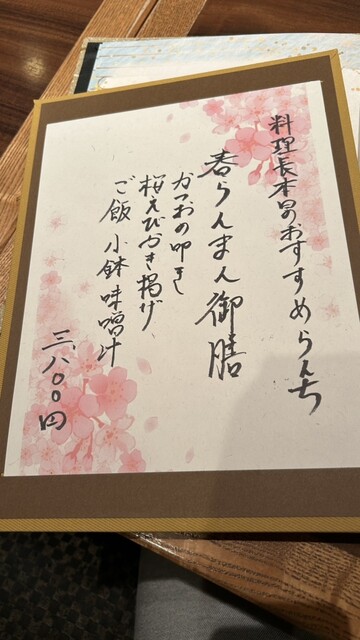 料理長本日のおすすめらんち
春らんまん御膳
かつおの叩き
桜えびかき揚げ
ご飯 小鉢 味噌汁
三八〇〇円